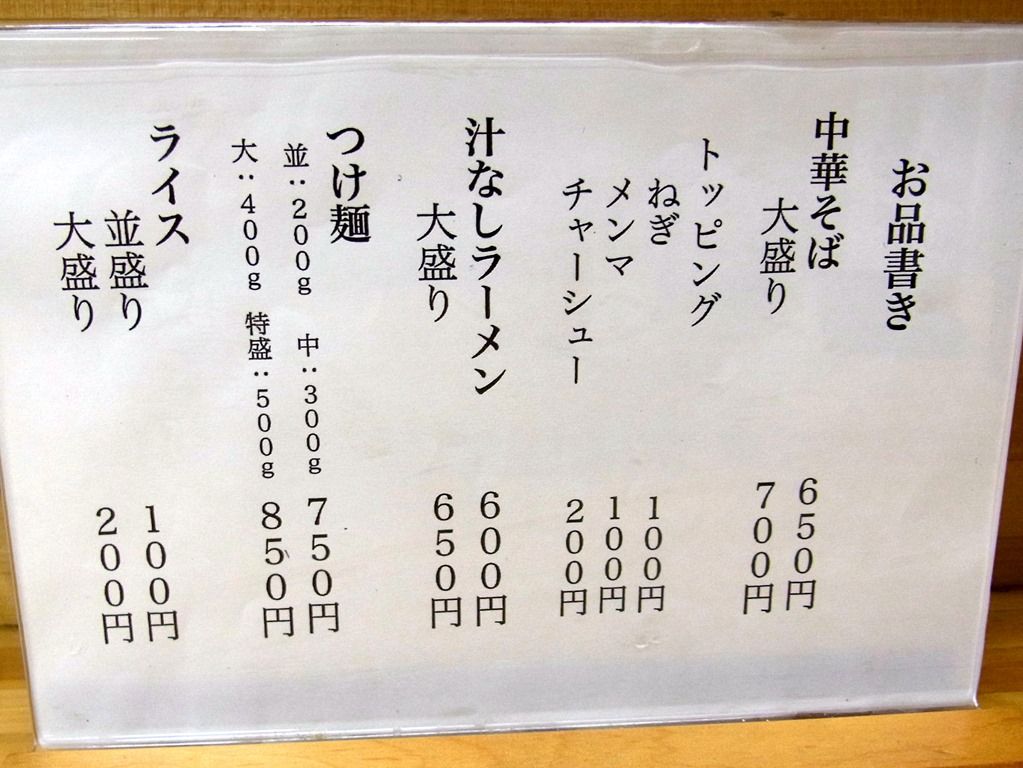 お品書き
中華そば 650円
大盛り 700円
トッピング
ねぎ 100円
メンマ 100円
チャーシュー 200円
汁なしラーメン 600円
大盛り 650円
つけ麺
並:200g 中:300g 750円
大:400g 特盛:500g 850円
ライス
並盛り 100円
大盛り 200円